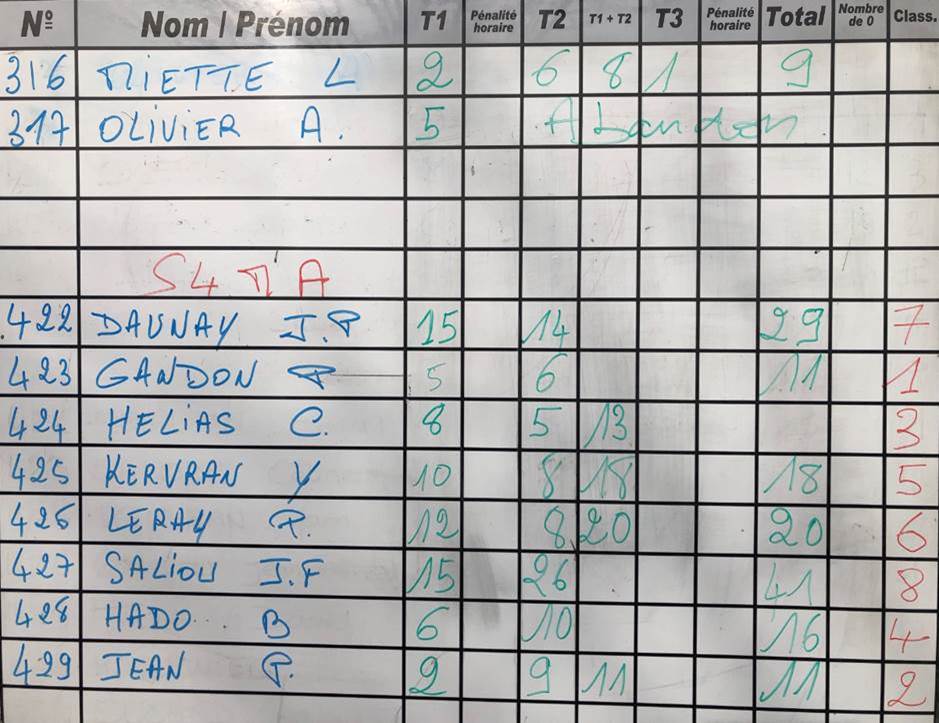 Nº Nom / Prénom T1 Pénalité horaire T2 T1 + T2 T3 Pénalité horaire Total Nombre de 0 Class.
316 MIETTE L 2 6 8 1 9
317 OLIVIER A. 5 Abandon
S4 M A
422 DAUNAY J.P 15 14 29 7
423 GANDON P 5 6 11 1
424 HELIAS C. 8 5 13 3
425 KERVRAN Y 10 8 18 18 5
426 LERAY P. 12 8 20 20 6
427 SALIOU J.F 15 26 41 8
428 HADO B 6 10 16 4
429 JEAN P. 2 9 11 11 2